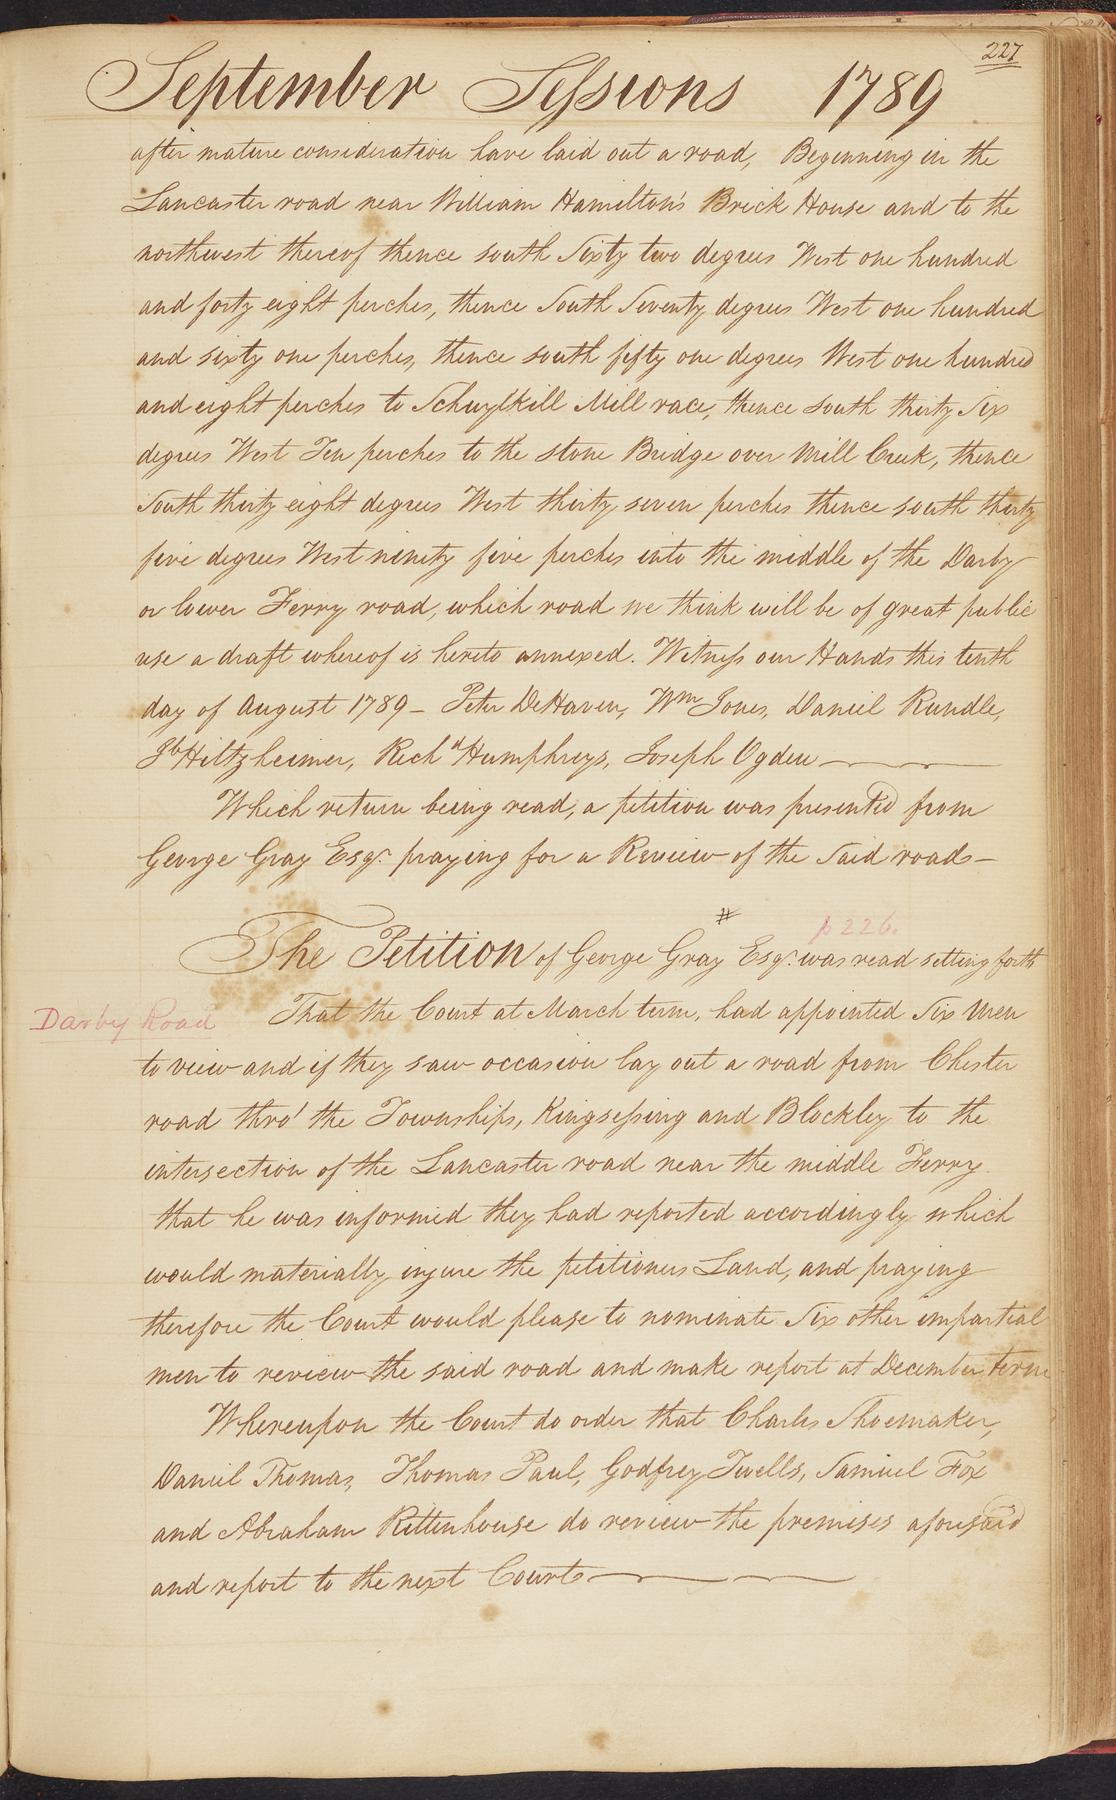 227
September Sessions 1789
after mature consideration have laid out a road, Beginning in the
Lancaster road near William Hamilton's Brick House and to the
northwest thereof thence south Sixty two degrees West one hundred
and forty eight perches, thence South Seventy degrees West one hundred
and sixty one perches, thence south fifty one degrees West one hundred
and eight perches to Schuylkill Mill race, thence South thirty Six
degrees West Ten perches to the stone Bridge over Mill Creek, thence
South thirty eight degrees West thirty seven perches thence south thirty
five degrees West ninety five perches into the middle of the Darby
or lower Ferry road, which road we think will be of great public
use a draft whereof is hereto annexed. Witness our Hands this tenth
day of August 1789 - Peter DeHaven, Wm Jones, Daniel Rundle,
Jb Hiltzheimer, Richd Humphreys, Joseph Ogden
Which return being read, a petition was presented from
George Gray Esqr. praying for a Review of the Said road -
#
p 226.
The Petition of George Gray Esqr. was read setting forth
Darby Road
That the Court at March term, had appointed Six Men
to view and if they saw occasion lay out a road from Chester
road thro' the Townships, Kingsessing and Blockley to the
intersection of the Lancaster road near the middle Ferry.
that he was informed they had reported accordingly which
would materially injure the petitioners Land, and praying
therefore the Court would please to nominate Six other impartial
men to review the said road and make report at December term
Whereupon the Court do order that Charles Shoemaker,
Daniel Thomas, Thomas Paul, Godfrey Twells, Samuel Fox
and Abraham Rittenhouse do review the premises aforesaid
and report to the next Court